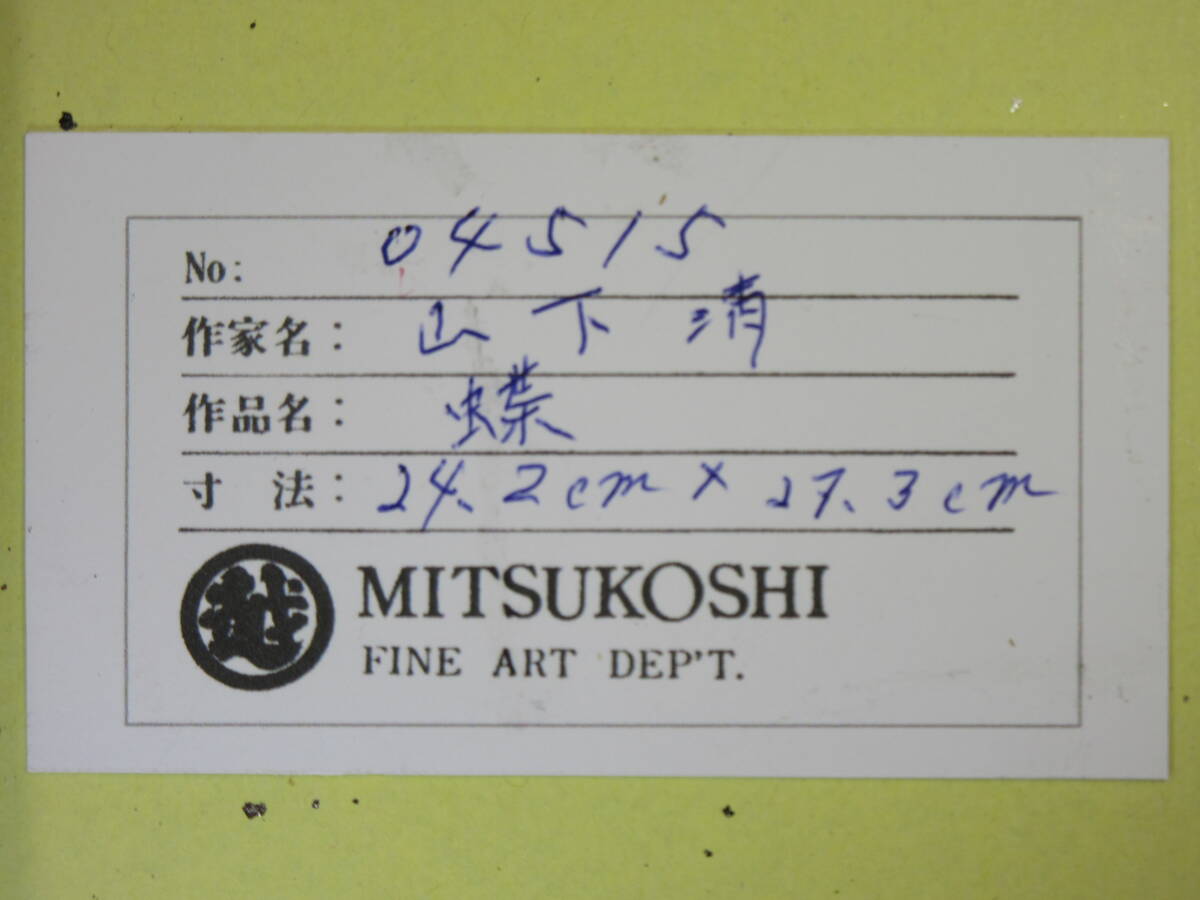 No: 04515
作家名: 山下清
作品名: 蝶
寸 法: 24.2cm × 27.3cm
越 MITSUKOSHI
FINE ART DEP'T.